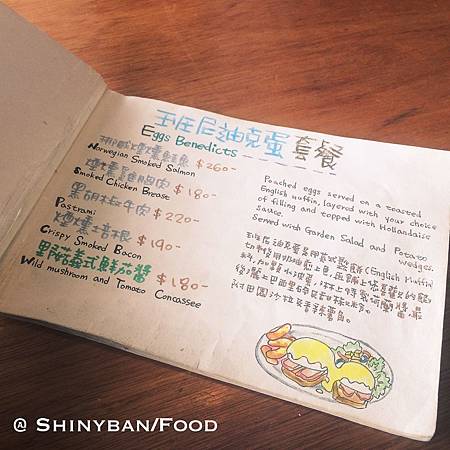 班尼迪克蛋套餐
Eggs Benedicts
挪威煙燻鮭魚 $260-
Norwegian Smoked Salmon
煙燻雞胸肉 $180-
Smoked Chicken Breast
黑胡椒牛肉 $220-
Pastrami
煙燻培根 $190-
Crispy Smoked Bacon
野菇義式鮮茄醬 $180-
Wild mushroom and Tomato Concassee
Poached eggs served on a toasted
English muffin, layered with your choice
of filling and topped with Hollandaise
sauce.
Served with Garden Salad and Potato
wedges.
班尼迪克蛋是用英式鬆餅(English Muffin)
切對後用奶油煎上色,再鋪上您喜歡的餡
料,加顆水波蛋,淋上特製荷蘭醬,最
後灑上巴西里碎
附田園沙拉及
@ Shinyban/Food